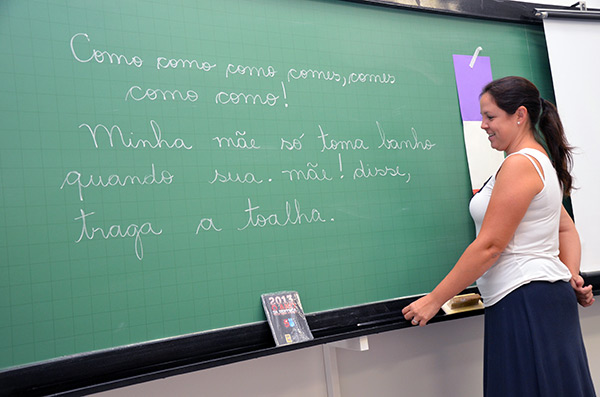 Como como como comes, comes
como como!
Minha mãe só toma banho
quando sua. mãe! disse,
traga a toalha.
2013